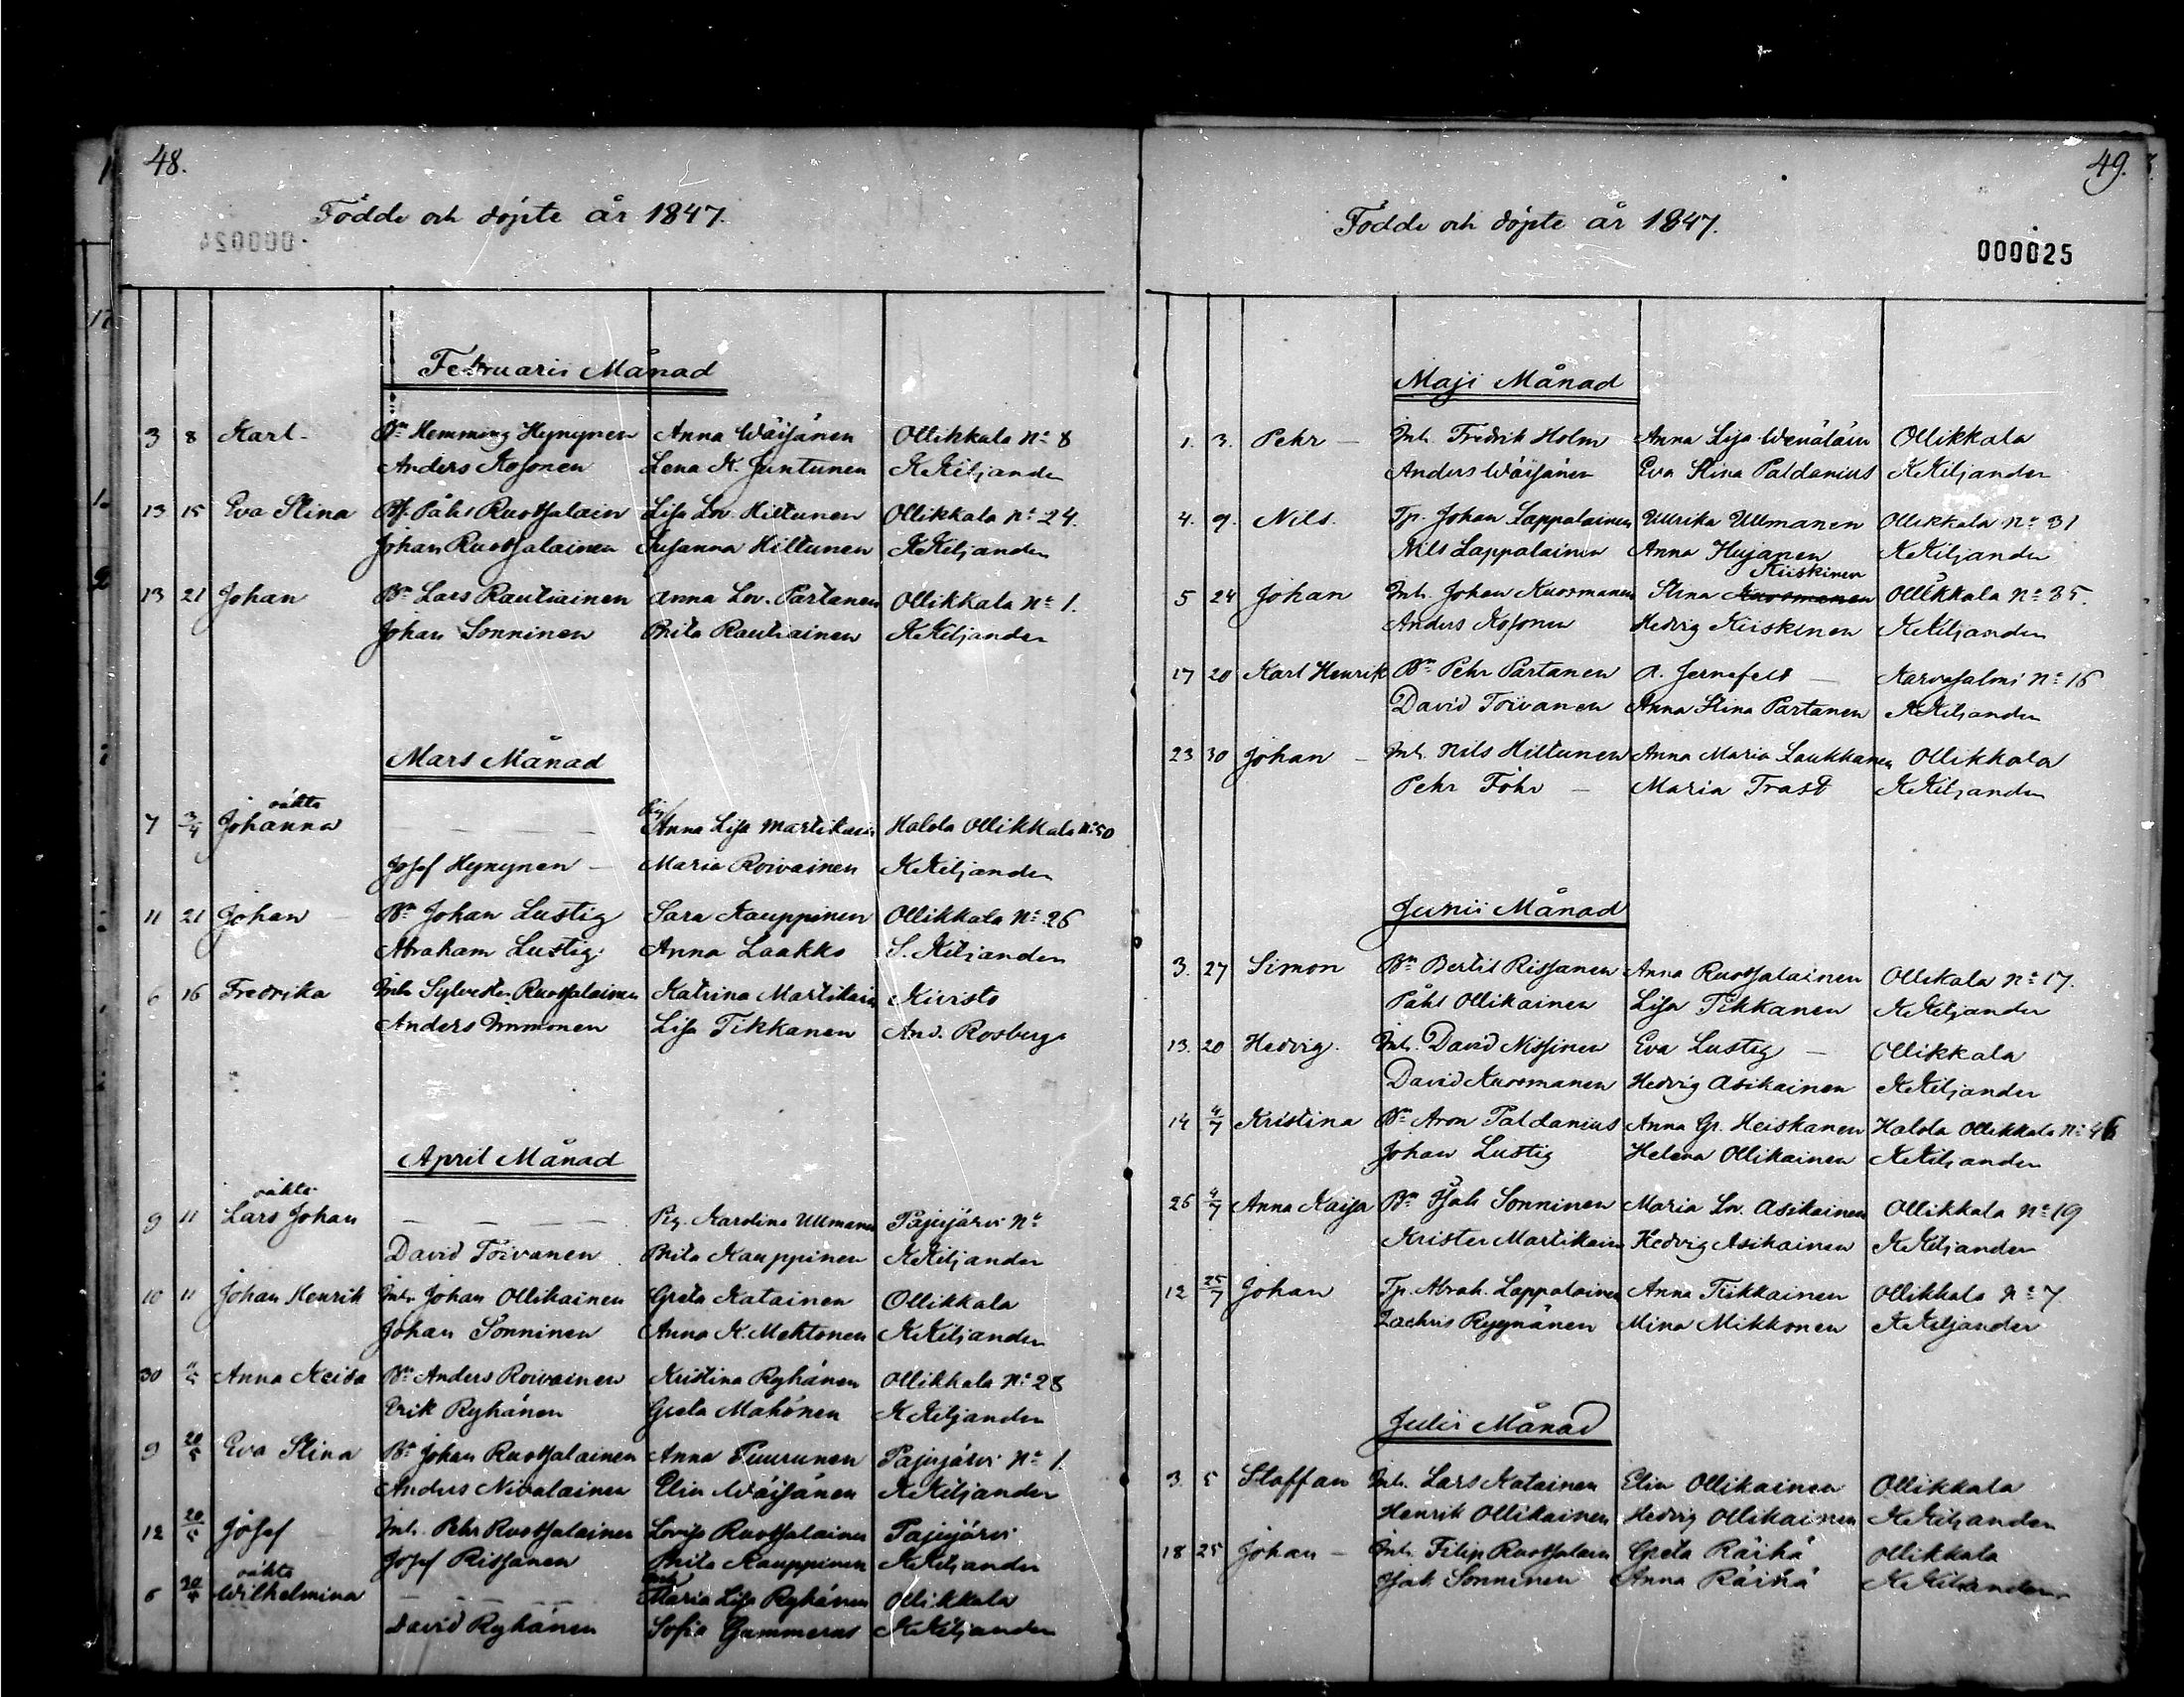 48.
Födde och döpte år 1847.
Februarii Månad
3 8 Karl - Bn Hemming Hynynen Anna Wäisänen Ollikkala No 8
Anders Kosonen Lena K. Juntunen K Kiljander
13 15 Eva Stina Bf. Påhl Ruotsalain Lisa Lov. Hiltunen Ollikkala No 24.
Johan Ruotsalainen Susanna Hiltunen K Kiljander
13 21 Johan Bn Lars Rautiainen Anna Lov. Partanen Ollikkala No 1.
Johan Sonninen Brita Rautiainen K Kiljander
Mars Månad
oäkta
7 3/4 Johanna — — — — Anna Lisa Martikain Halola Ollikkala No 50
Josef Hynynen — Maria Roivainen K Kiljander
11 21 Johan — Bn Johan Lustig Sara Kauppinen Ollikkala No 26
Abraham Lustig Anna Laakko S. Kiljander
6 16 Fredrika Inh. Sylvester Ruotsalainen Katrina Martikain Kivisto
Anders Immonen Lisa Tikkanen And. Rosberg
April Månad
oäkta
9 11 Lars Johan — — — — Pig. Karolina Ullmanen Pajujärvi No
David Toivanen Brita Kauppinen K Kiljander
10 11 Johan Henrik Inh. Johan Ollikainen Greta Katainen Ollikkala
Johan Sonninen Anna K. Mehtonen K Kiljander
30 Anna Keisa Bn Anders Roivainen Kristina Ryhänen Ollikkala No 28
Erik Ryhänen Greta Mahönen K Kiljander
9 20/5 Eva Stina Bn Johan Ruotsalainen Anna Tuurunen Pajujärvi No 1.
Anders Nivalainen Elin Wäisänen K Kiljander
12 20/5 Josef — Inh. Pehr Ruotsalainen Lovisa Ruotsalainen Pajujärvi
Josef Rissanen Brita Kauppinen K Kiljander
oäkta
6 Wilhelmina — — — — Maria Lisa Ryhänen Ollikkala
David Ryhänen Sofia Gummerus K Kiljander
49.
Födde och döpte år 1847.
000025
Maji Månad
1. 3. Pehr — Inh. Fredrik Holm Anna Lisa Wenäläin Ollikkala
Anders Wäisänen Eva Stina Paldanius K Kiljander
4. 9. Nils. Tp. Johan Lappalainen Ullrika Ullmanen Ollikkala No 31
Nils Lappalainen Anna Hujanen K Kiljander
Kiiskinen
5 24 Johan Inh. Johan Kuosmanen Stina Kuosmanen Ollikkala No 35.
Anders Kosonen Hedvig Kiiskinen K Kiljander
17 20 Karl Henrik Bn Pehr Partanen A. Jernefelt — Karvasalmi No 16
David Toivanen Anna Stina Partanen K Kiljander
23 30 Johan — Inh. Nils Hiltunen Anna Maria Laukkanen Ollikkala
Pehr Föhr — Maria Trast K Kiljander
Junii Månad
3. 27 Simon Bn Bertil Rissanen Anna Ruotsalainen Ollikala No 17.
Påhl Ollikainen Lisa Tikkanen K Kiljander
13. 20 Hedvig. Inh. David Nissinen Eva Lustig — Ollikkala
David Kuosmanen Hedvig Asikainen K Kiljander
14 4/7 Kristina Bn Aron Paldanius Anna Gr. Heiskanen Halola Ollikkala No 46
Johan Lustig Helena Ollikainen K Kiljander
26 4/7 Anna Kaisa Bn Isak Sonninen Maria Lov. Asikainen Ollikkala No 19
Krister Martikain Hedvig Asikainen K Kiljander
12 25/7 Johan Tp. Abrah. Lappalainen Anna Tiikkainen Ollikkala No 7.
Zachris Ryynänen Mina Mikkonen K Kiljander
Julii Månad
3. 5 Staffan Inh. Lars Katainen Elin Ollikainen Ollikkala
Henrik Ollikainen Hedvig Ollikainen K Kiljander
18 25 Johan — Inh. Filip Ruotsalain Greta Räihä Ollikkala
Isak Sonninen Anna Räihä K Kiljander